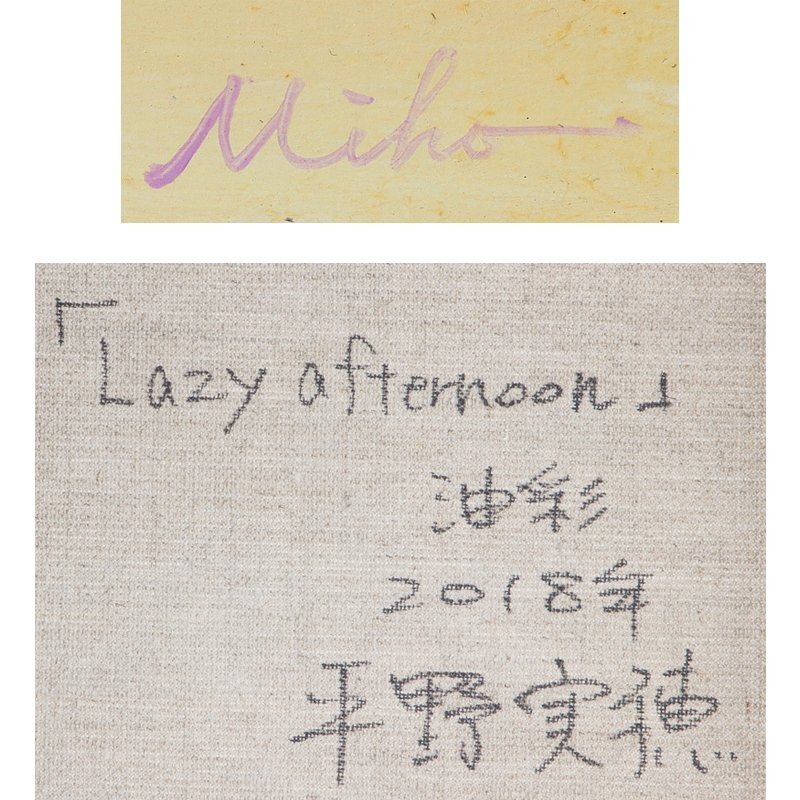 Miho
「Lazy afternoon」
油彩
2018年
平野実穂